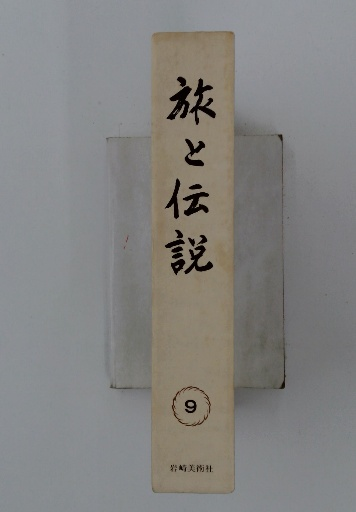 旅と伝説
9
岩崎美術社